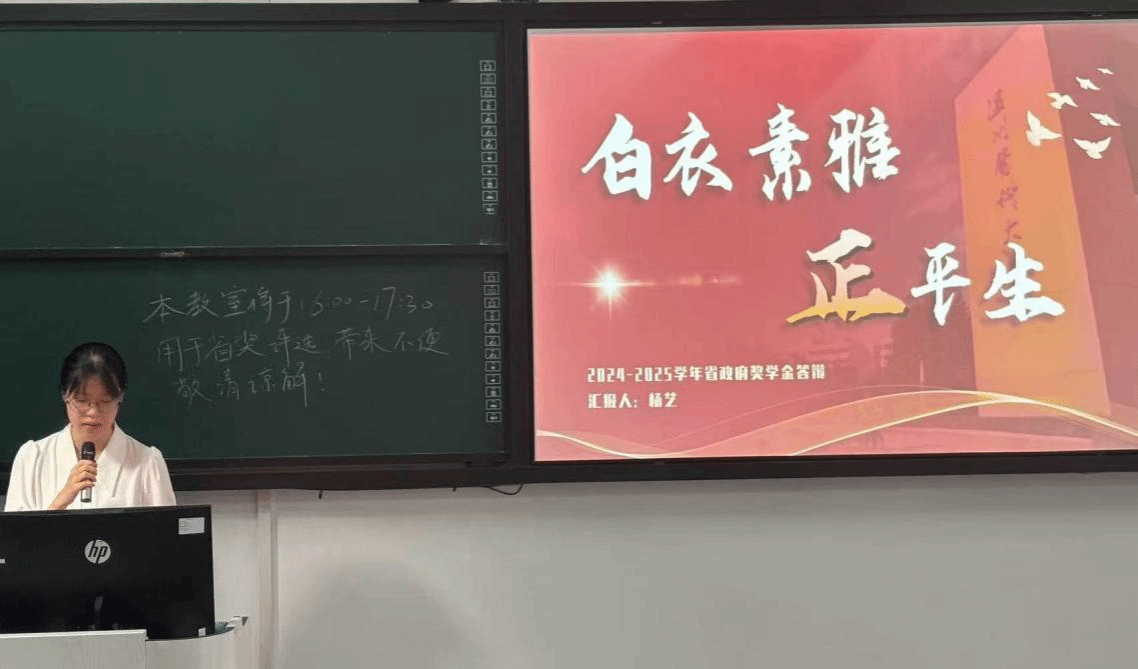 本教室将于16:00-17:30
用于省奖评选 带来不便
敬请谅解!
白衣素雅
正平生
2024-2025学年省政府奖学金答辩
汇报人:杨艺
hp